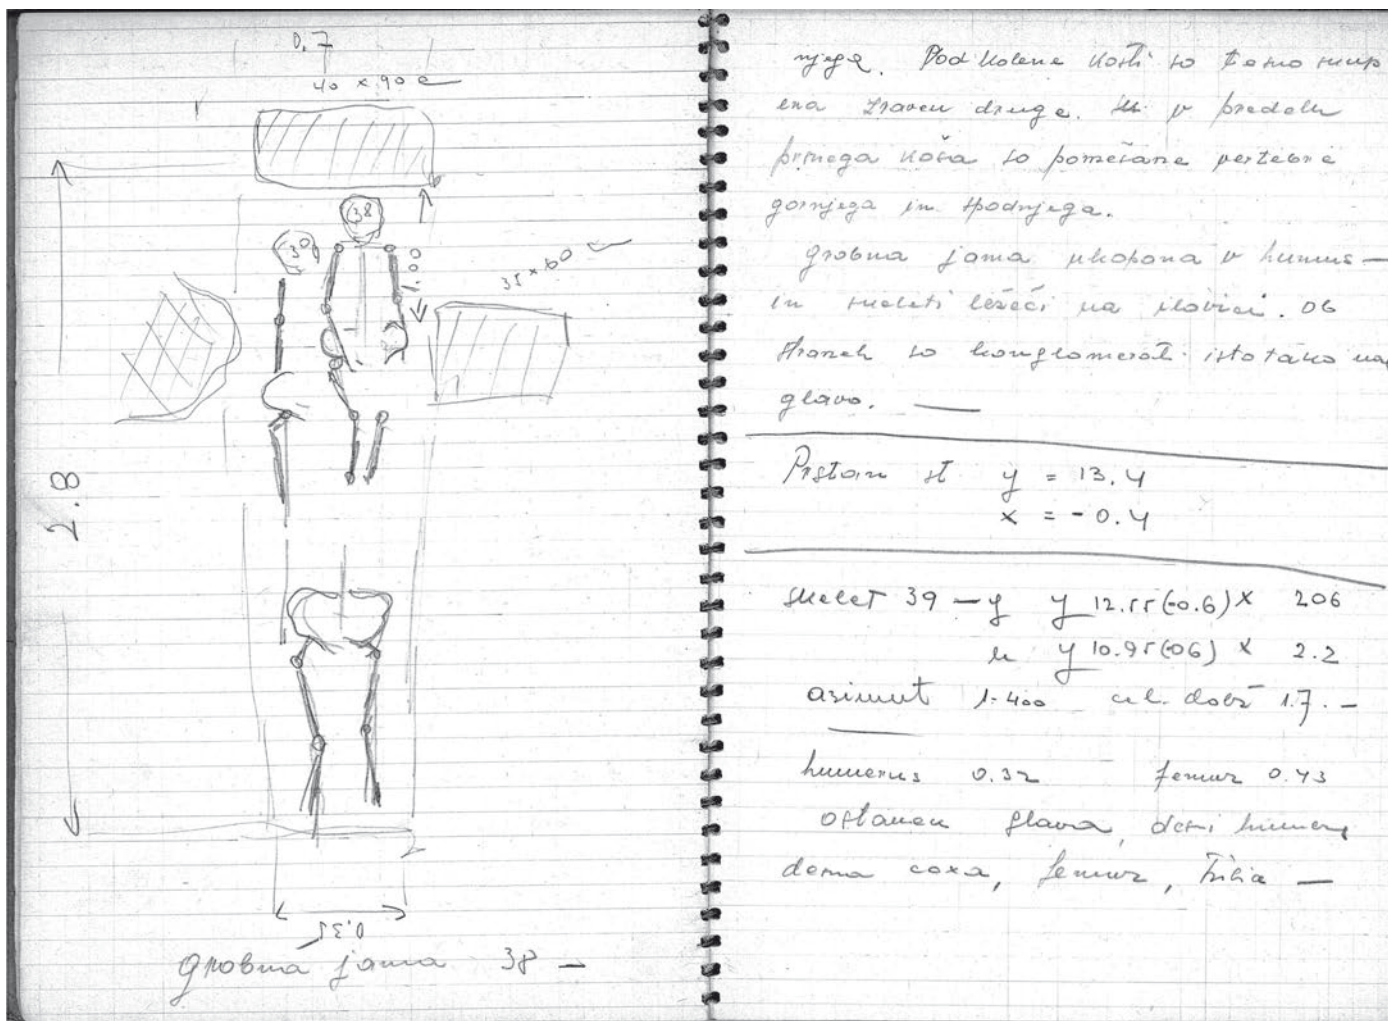 0.7
40 x 90
38
39
1.00
35 x 60
2.8
0.35
grobna jama 38 —
njega. Pod kolene kosti so tesno skup
ena zraven druge. v predelu
prsnega koša so pomešane vertebre
gornjega in spodnjega.
grobna jama ukopana v humus —
in skeleti ležeči na ilovici. Ob
straneh so konglomerati istotako nad
glavo. —
Prstan st y = 13.4
x = -0.4
skelet 39 — g y 12.55 (-0.6) x 206
n y 10.95 (06) x 2.2
azimut 1-400 cel. dolž 1.7. —
humerus 0.32 femur 0.43
ostanek glava, desni humerus
desna coxa, femur, tibia —